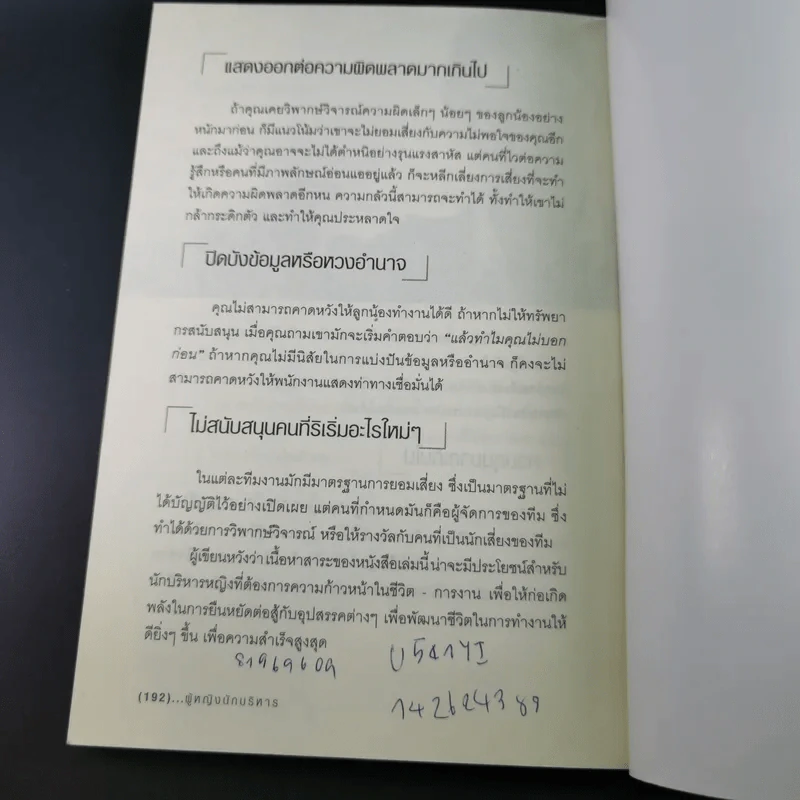 แสดงออกต่อความผิดพลาดมากเกินไป
ถ้าคุณเคยวิพากษ์วิจารณ์ความผิดเล็กๆ น้อยๆ ของลูกน้องอย่าง
หนักมาก่อน ก็มีแนวโน้มว่าเขาจะไม่ยอมเสี่ยงกับความไม่พอใจของคุณอีก
และถึงแม้ว่าคุณอาจจะไม่ได้ตำหนิอย่างรุนแรงสาหัส แต่คนที่ไวต่อความ
รู้สึกหรือคนที่มีภาพลักษณ์อ่อนแออยู่แล้ว ก็จะหลีกเลี่ยงการเสี่ยงที่จะทำ
ให้เกิดความผิดพลาดอีกหน ความกลัวนี้สามารถจะทำได้ ทั้งทำให้เขาไม่
กล้ากระดิกตัว และทำให้คุณประหลาดใจ
ปิดบังข้อมูลหรือหวงอำนาจ
คุณไม่สามารถคาดหวังให้ลูกน้องทำงานได้ดี ถ้าหากไม่ให้ทรัพยา
กรสนับสนุน เมื่อคุณถามเขามักจะเริ่มคำตอบว่า “แล้วทำไมคุณไม่บอก
ก่อน” ถ้าหากคุณไม่มีนิสัยในการแบ่งปันข้อมูลหรืออำนาจ ก็คงจะไม่
สามารถคาดหวังให้พนักงานแสดงท่าทางเชื่อมั่นได้
ไม่สนับสนุนคนที่ริเริ่มอะไรใหม่ๆ
ในแต่ละทีมงานมักมีมาตรฐานการยอมเสี่ยง ซึ่งเป็นมาตรฐานที่ไม่
ได้บัญญัติไว้อย่างเปิดเผย แต่คนที่กำหนดมันก็คือผู้จัดการของทีม ซึ่ง
ทำได้ด้วยการวิพากษ์วิจารณ์ หรือให้รางวัลกับคนที่เป็นนักเสี่ยงของทีม
ผู้เขียนหวังว่าเนื้อหาสาระของหนังสือเล่มนี้น่าจะมีประโยชน์สำหรับ
นักบริหารหญิงที่ต้องการความก้าวหน้าในชีวิต - การงาน เพื่อให้ก่อเกิด
พลังในการยืนหยัดต่อสู้กับอุปสรรคต่างๆ เพื่อพัฒนาชีวิตในการทำงานให้
ดียิ่งๆ ขึ้น เพื่อความสำเร็จสูงสุด
(192)...ผู้หญิงนักบริหาร